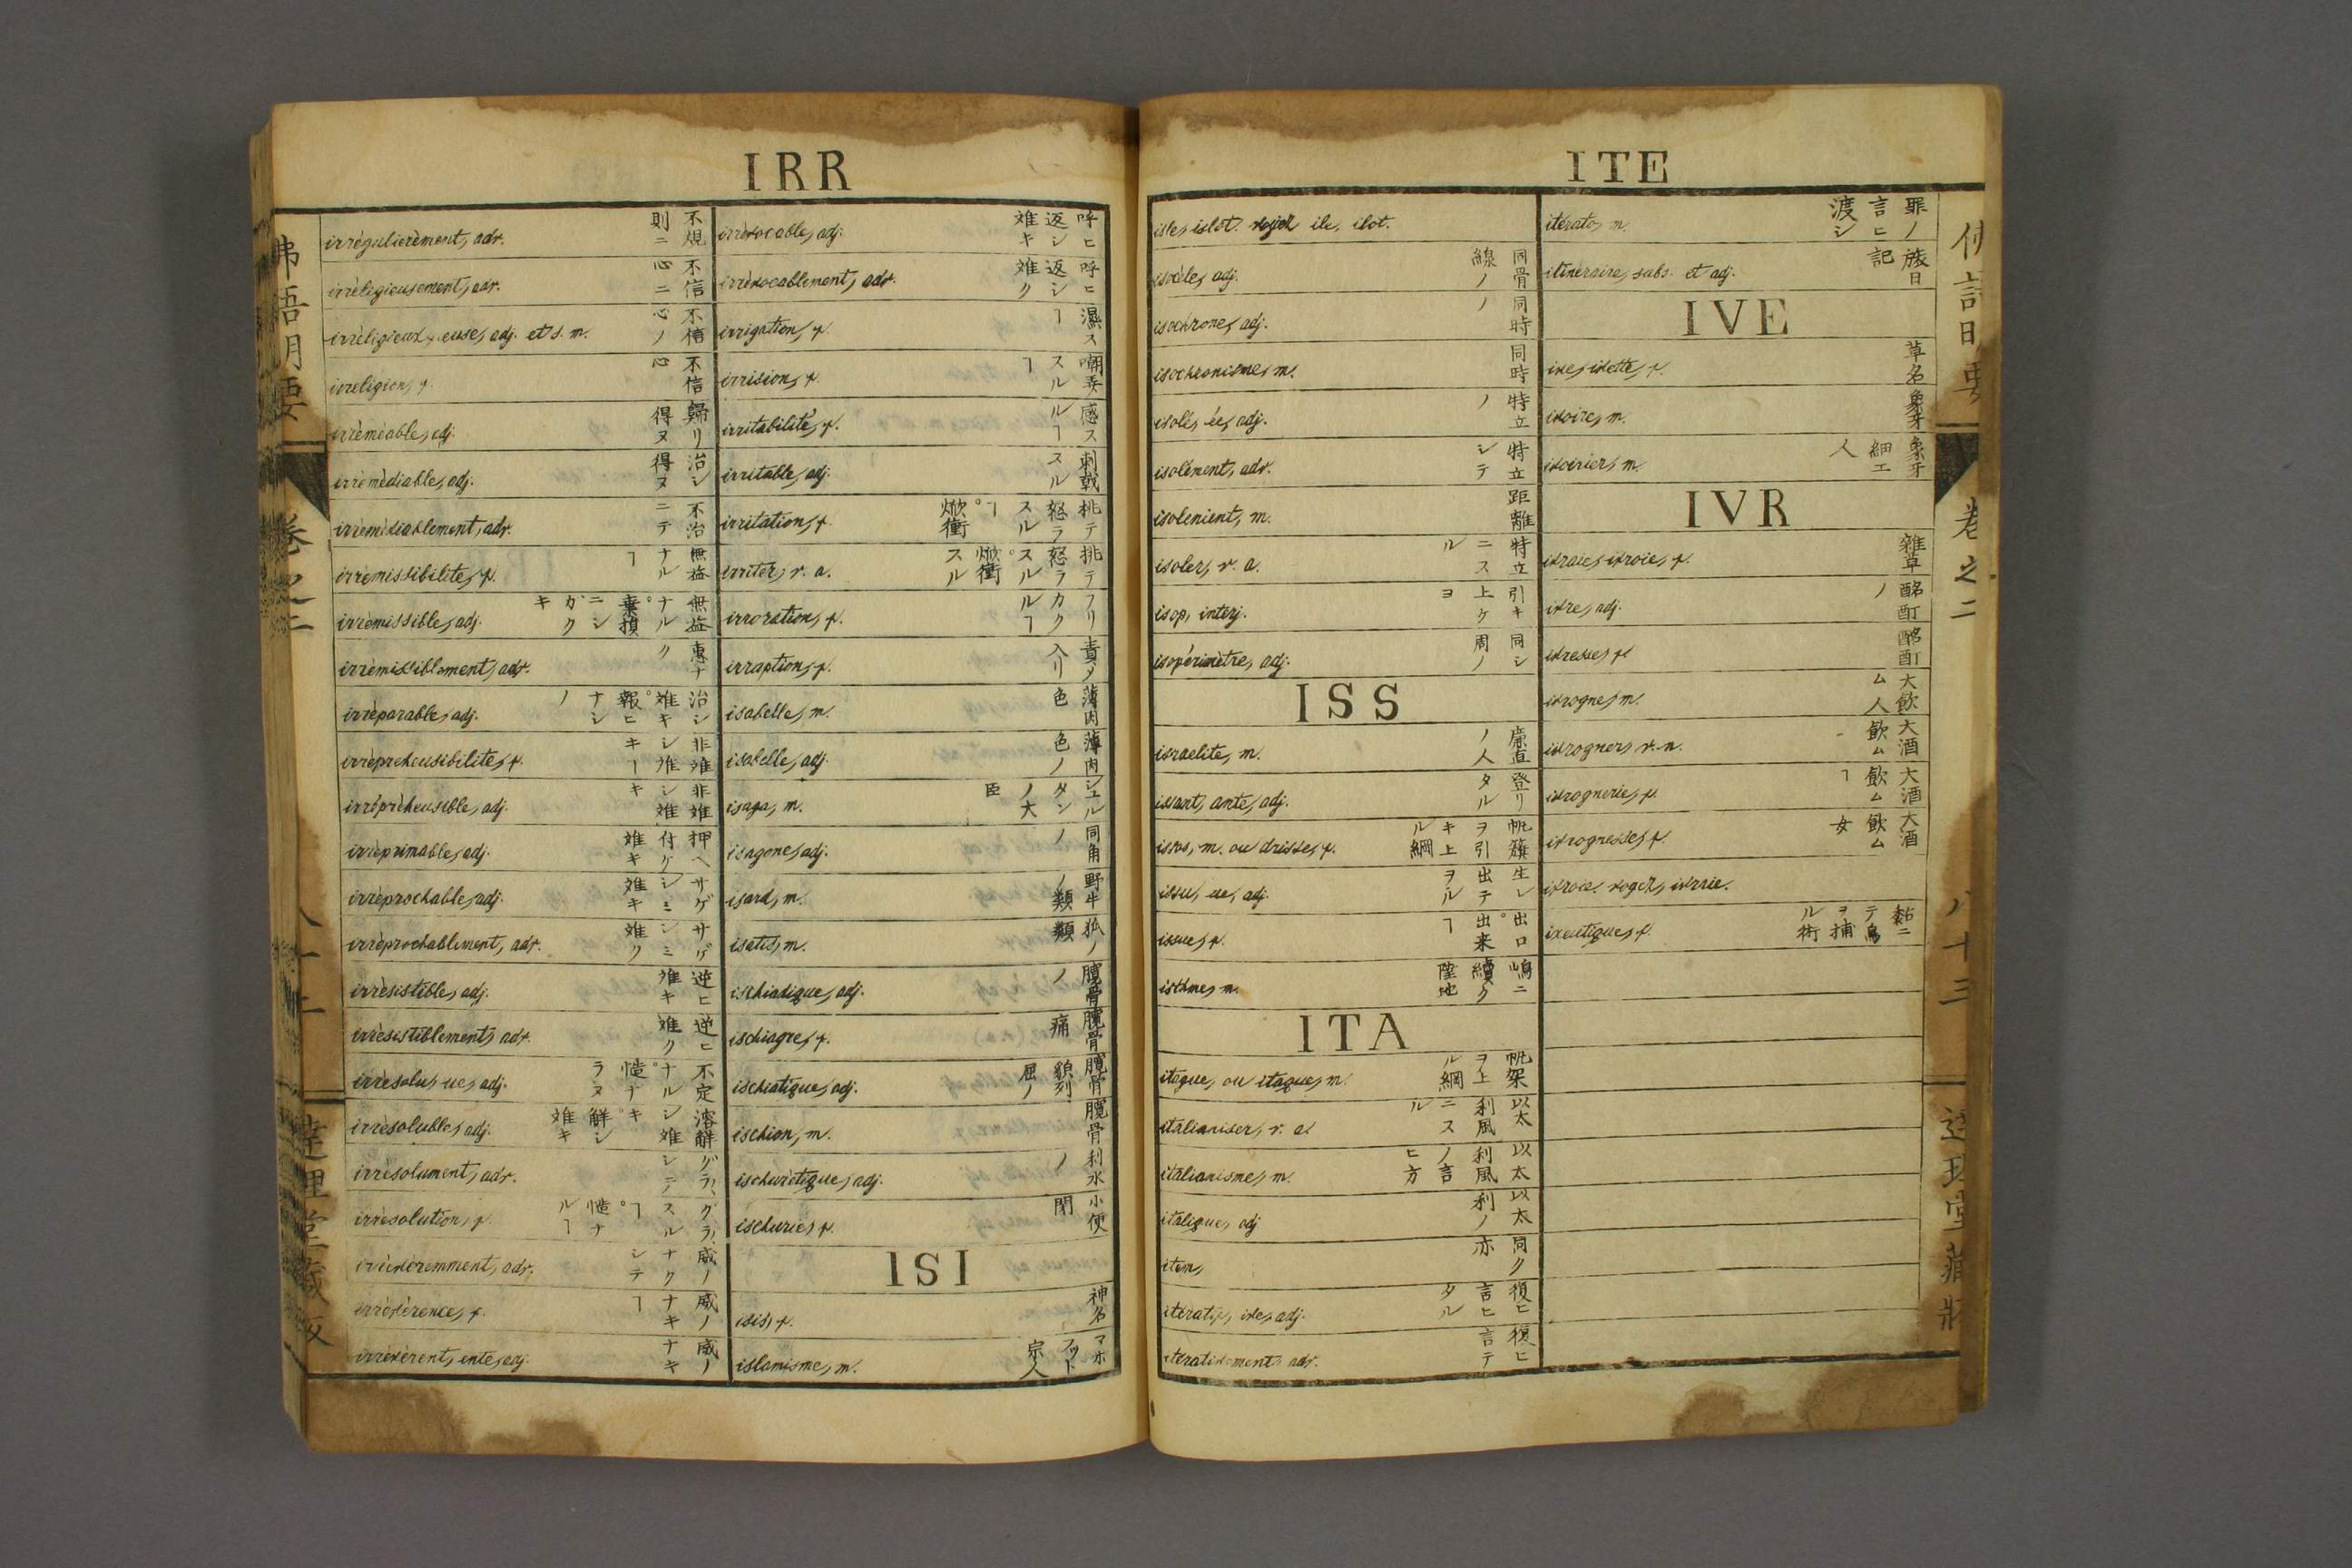 IRR
irrégulierèment, adv. 不規則ニ
irréligieusement, adv. 不信心ニ
irréligieux, euse, adj. et s. m. 不信心ノ
irreligion, f. 不信心
irrèmèable, adj. 歸リ得ヌ
irrémèdiable, adj. 治シ得ヌ
irrémèdiablement, adv. 不治ニテ
irrémissibilité, f. 無益ナルヿ
irrémissible, adj.
irrémissiblement, adv.
irréparable, adj. 治シ難キ。報ヒナシノ
irrépréheusibilité, f. 非难シ难キヿ
irrépréheusible, adj. 非难シ难キ
irréprimable, adj. 押ヘ付ケ難キ
irréprochable, adj. サゲシミ難キ
irréprochablement, adv. サゲシミ難ク
irrésistible, adj. 逆ヒ難キ
irrésistiblement, adv. 逆ヒ難ク
irrésolu, ue, adj. 不定ナル。慥ナラヌ
irrésoluble, adj. 溶解シ難キ。解シ難キ
irrésolument, adv.
irrésolution, f.
irrévéremment, adv. 威ノナクシテ
irrévérence, f. 威ノナキヿ
irrévérent, ente, adj. 威ノナキ
irrévocable, adj. 呼ヒ返シ難キ
irrévocablement, adv. 呼ヒ返シ難ク
irrigation, f. 濕スヿ
irrision, f. 嘲弄スルヿ
irritabilité, f. 感スルヿ
irritable, adj. 刺戟スル
irritation, f. 挑テ怒ラスルヿ。焮衝
irriter, v. a. 挑テ怒ラスル。焮衝スル
irroration, f. フリカクルヿ
irraption, f. 責メ入リ
isabelle, m. 薄肉色
isabelle, adj. 薄肉色ノ
isaga, m. シュルタンノ大臣
isagone, adj. 同角ノ
isard, m. 野牛ノ類
isatis, m. 狐ノ類
ischiadique, adj. 臗骨ノ
ischiagre, f. 臗骨痛
ischiatique, adj.
ischion, m. 臗骨
ischurètique, adj. 利水ノ
ischurie, f. 小便閉
ISI
isis, f. 神名
islamisme, m. マホメット宗人
ITE
isle, islot. voyez ile, ilot.
isocèle, adj. 同骨線ノ
isochrone, adj. 同時ノ
isochronisme, m. 同時
isolé, ée, adj. 特立ノ
isolément, adv. 特立シテ
isolenient, m. 距離
isoler, v. a. 特立ニスル
isop, interj. 引キ上ケヨ
isopérimètre, adj. 同シ周ノ
ISS
israelite, m. 廉直ノ人
issant, ante, adj. 登リタル
issos, m. ou drisse, f. 帆簱ヲ引キ上ル綱
issu, ue, adj. 生レ出テヲル
issue, f. 出口。出来ヿ
isthme, m. 嶋ニ續ク陸地
ITA
itague, ou itaque, m. 帆架ヲ上ル綱
italianiser, v. a. 以太利風ニスル
italianisme, m. 以太利風ノ言ヒ方
italique, adj 以太利ノ
item, 同ク亦
itératif, ive, adj. 復ヒ言ヒタル
itérativement, adv. 復ヒ言テ
itérato, m. 罪ノ言ヒ渡シ
itinéraire, subs. et adj. 旅日記
IVE
ive, ivette, f. 草名
ivoire, m. 象牙
ivoirier, m. 象牙細工人
IVR
ivraie, ivroie, f. 雜草
ivre, adj. 酩酊ノ
ivresse, f. 酩酊
ivrogne, m. 大飲ム人
ivrogner, v. n. 大酒飲ム
ivrognerie, f. 大酒飲ムヿ
ivrognesse, f. 大酒飲ム女
ivroie. voyez, ivraie.
ixeutique, f. 黐ニテ鳥ヲ捕ル術
卷之二
八十三